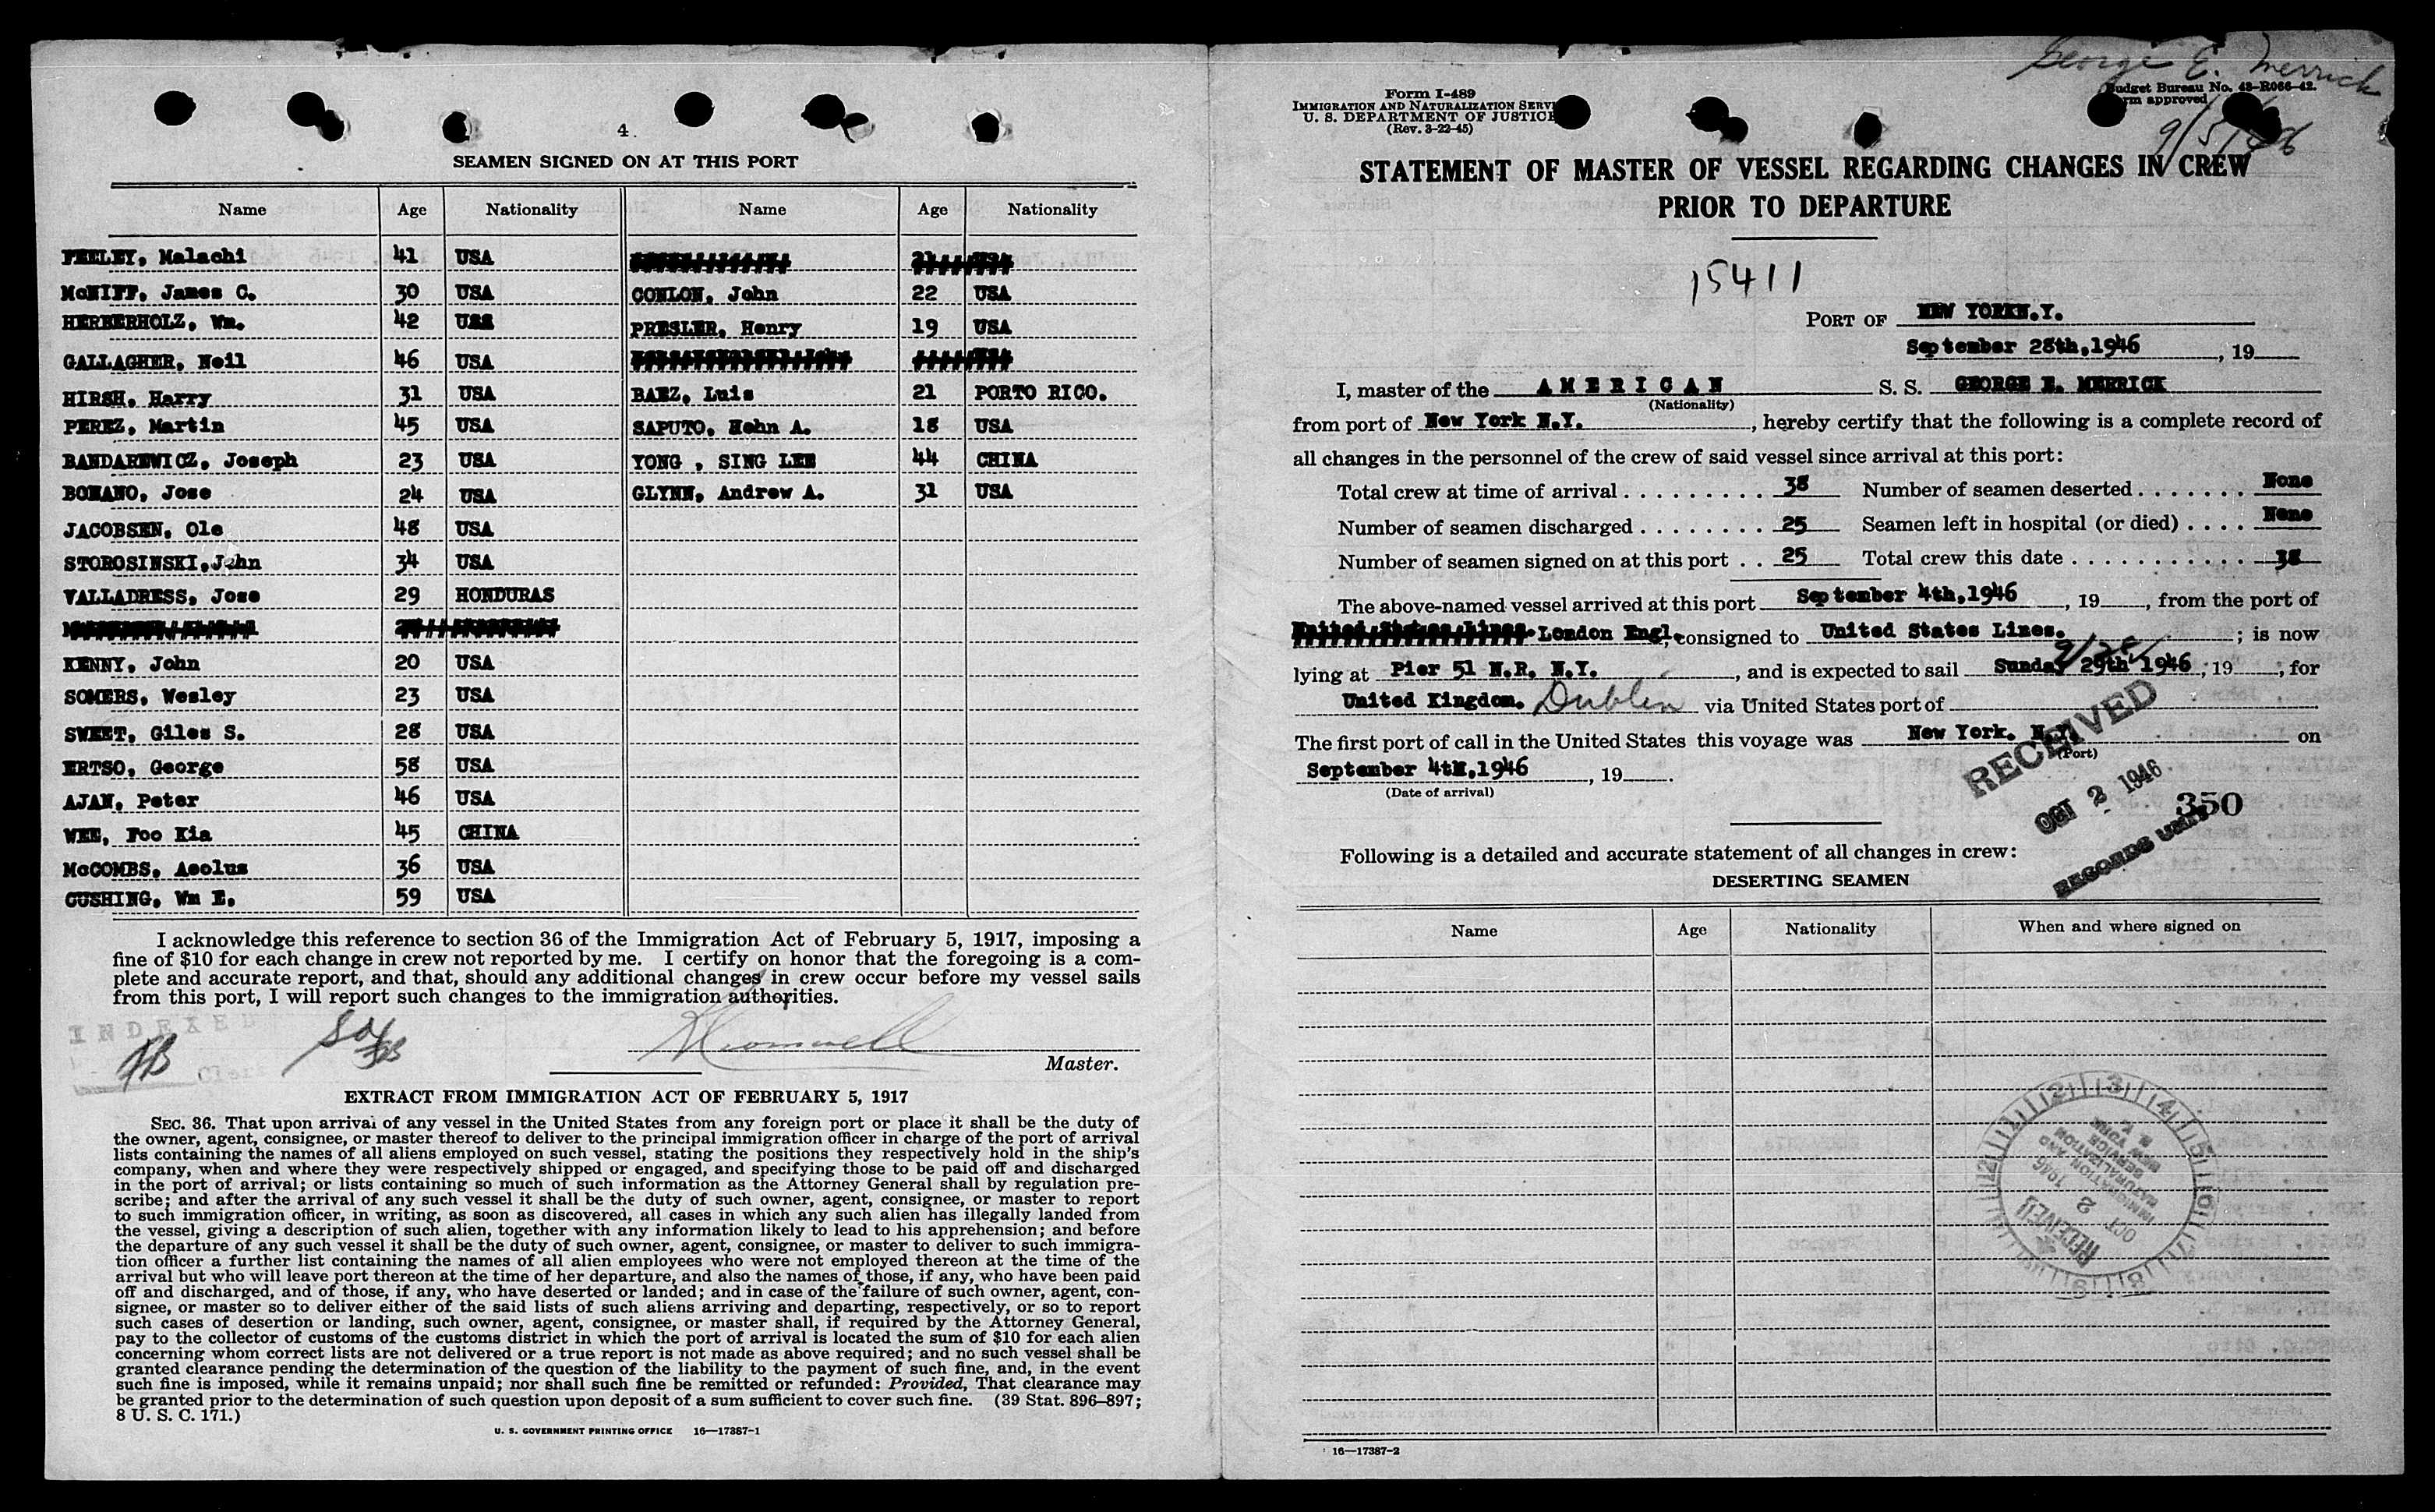 4.
SEAMEN SIGNED ON AT THIS PORT
Name Age Nationality Name Age Nationality
FEELEY, Malachi 41 USA
McNIFF, James C. 30 USA CONLON, John 22 USA
HERBERHOLZ, Wm. 42 USA PRESLER, Henry 19 USA
GALLAGHER, Neil 46 USA
HIRSH, Harry 31 USA BAEZ, Luis 21 PORTO RICO.
PEREZ, Martin 45 USA SAPUTO, Hohn A. 18 USA
BANDAREWICZ, Joseph 23 USA YONG , SING LEE 44 CHINA
BONANO, Jose 24 USA GLYNN, Andrew A. 31 USA
JACOBSEN, Ole 48 USA
STOROSINSKI,John 34 USA
VALLADRESS, Jose 29 HONDURAS
KENNY, John 20 USA
SOMERS, Wesley 23 USA
SWEET, Giles S. 28 USA
ERTSO, George 58 USA
AJAN, Peter 46 USA
WEE, Foo Kia 45 CHINA
McCOMBS, Aeolus 36 USA
CUSHING, Wm E. 59 USA
I acknowledge this reference to section 36 of the Immigration Act of February 5, 1917, imposing a
fine of $10 for each change in crew not reported by me. I certify on honor that the foregoing is a com-
plete and accurate report, and that, should any additional changes in crew occur before my vessel sails
from this port, I will report such changes to the immigration authorities.
INDEXED
Master.
EXTRACT FROM IMMIGRATION ACT OF FEBRUARY 5, 1917
SEC. 36. That upon arrival of any vessel in the United States from any foreign port or place it shall be the duty of
the owner, agent, consignee, or master thereof to deliver to the principal immigration officer in charge of the port of arrival
lists containing the names of all aliens employed on such vessel, stating the positions they respectively hold in the ship's
company, when and where they were respectively shipped or engaged, and specifying those to be paid off and discharged
in the port of arrival; or lists containing so much of such information as the Attorney General shall by regulation pre-
scribe; and after the arrival of any such vessel it shall be the duty of such owner, agent, consignee, or master to report
to such immigration officer, in writing, as soon as discovered, all cases in which any such alien has illegally landed from
the vessel, giving a description of such alien, together with any information likely to lead to his apprehension; and before
the departure of any such vessel it shall be the duty of such owner, agent, consignee, or master to deliver to such immigra-
tion officer a further list containing the names of all alien employees who were not employed thereon at the time of the
arrival but who will leave port thereon at the time of her departure, and also the names of those, if any, who have been paid
off and discharged, and of those, if any, who have deserted or landed; and in case of the failure of such owner, agent, con-
signee, or master so to deliver either of the said lists of such aliens arriving and departing, respectively, or so to report
such cases of desertion or landing, such owner, agent, consignee, or master shall, if required by the Attorney General,
pay to the collector of customs of the customs district in which the port of arrival is located the sum of $10 for each alien
concerning whom correct lists are not delivered or a true report is not made as above required; and no such vessel shall be
granted clearance pending the determination of the question of the liability to the payment of such fine, and, in the event
such fine is imposed, while it remains unpaid; nor shall such fine be remitted or refunded: Provided, That clearance may
be granted prior to the determination of such question upon deposit of a sum sufficient to cover such fine. (39 Stat. 896–897;
8 U. S. C. 171.)
U. S. GOVERNMENT PRINTING OFFICE 16—17387-1
George E. Merrick
Form I-489
IMMIGRATION AND NATURALIZATION SERVI
U. S. DEPARTMENT OF JUSTICE
(Rev. 3-22-45)
Budget Bureau No. 43-R066-42.
rm approved
9/5/46
STATEMENT OF MASTER OF VESSEL REGARDING CHANGES IN CREW
PRIOR TO DEPARTURE
15411
PORT OF NEW YORKN.Y.
September 28th,1946, 19
I, master of the AMERICAN S. S. GEORGE E. MERRICK
(Nationality)
from port of New York N.Y., hereby certify that the following is a complete record of
all changes in the personnel of the crew of said vessel since arrival at this port:
Total crew at time of arrival . . . . . . . . . 38 Number of seamen deserted . . . . . . . None
Number of seamen discharged . . . . . . . . 25 Seamen left in hospital (or died) . . . . None
Number of seamen signed on at this port . . 25 Total crew this date . . . . . . . . . . . 38
The above-named vessel arrived at this port September 4th,1946, 19, from the port of
London Engl, consigned to United States Lines. ; is now
lying at Pier 51 N.R. N.Y., and is expected to sail Sunday 29th 1946, 19, for
United Kingdom. Dublin via United States port of
The first port of call in the United States this voyage was New York. N.Y. on
(Port)
September 4th,1946, 19.
(Date of arrival)
RECEIVED
OCT 2 1946
RECORDS UNIT
350
Following is a detailed and accurate statement of all changes in crew:
DESERTING SEAMEN
Name Age Nationality When and where signed on
RECEIVED
OCT 2 1946
IMMIGRATION AND
NATURALIZATION
SERVICE
NEW YORK
N. Y.
16—17387-2